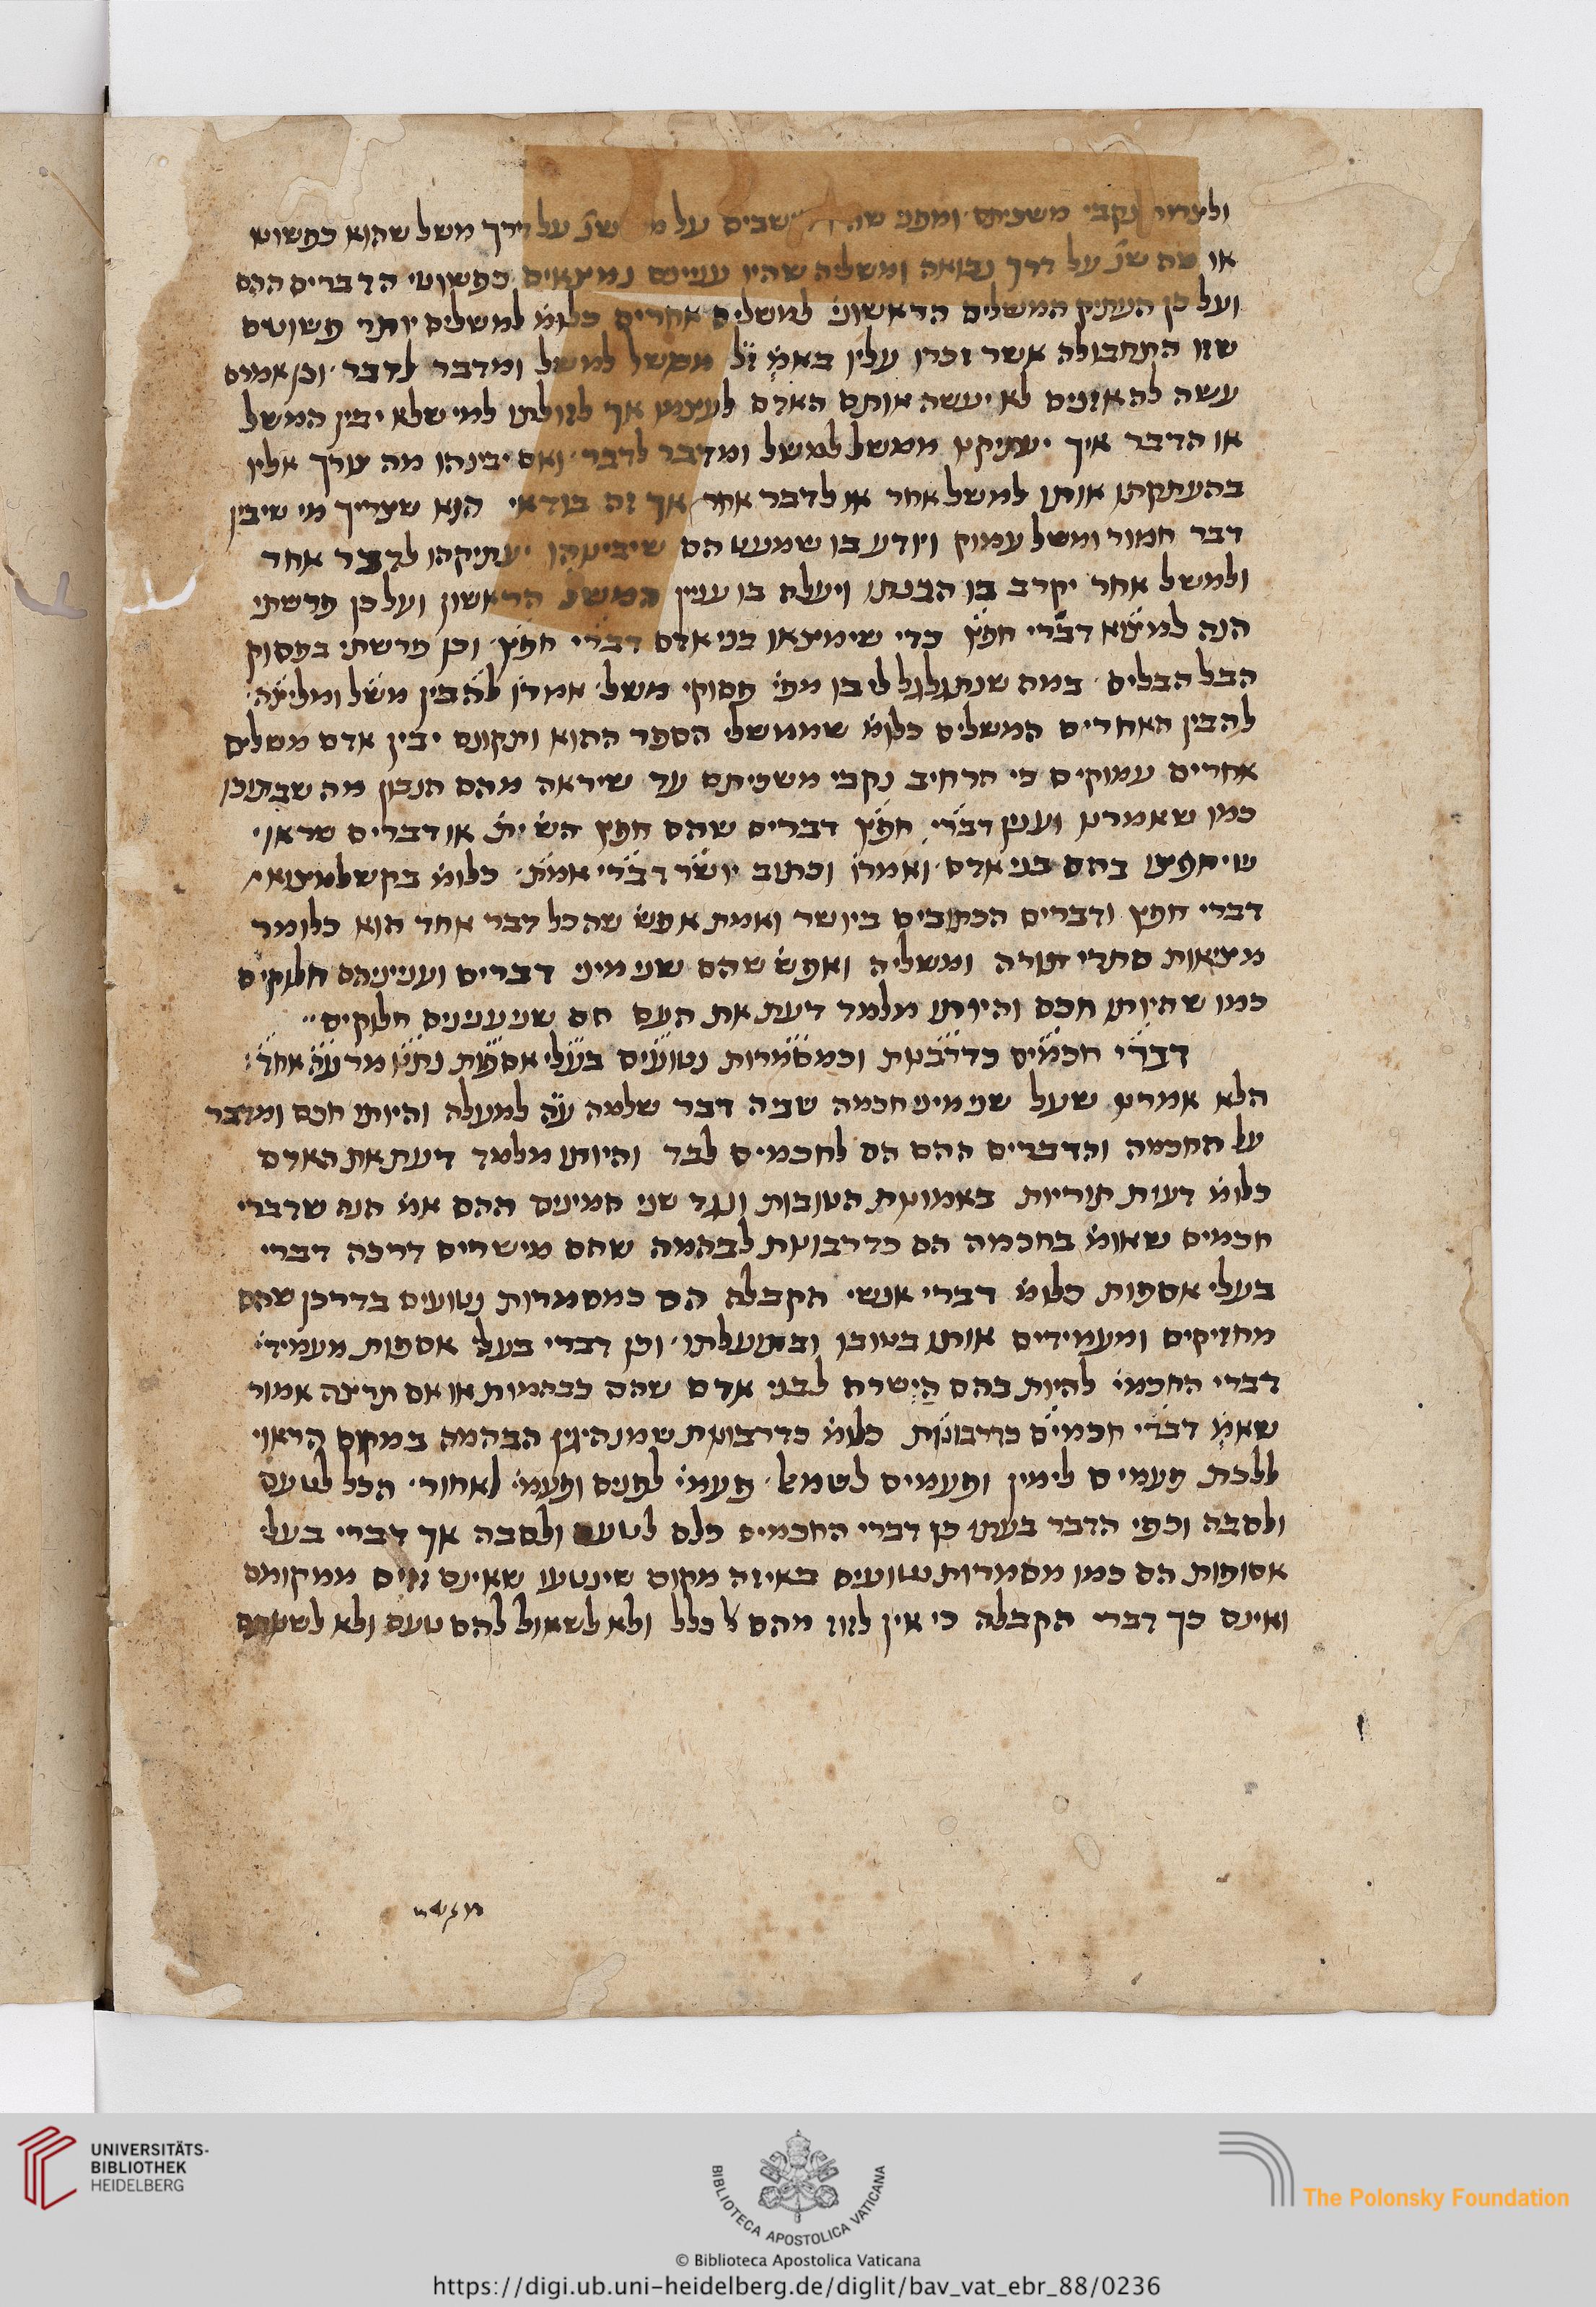 נקבי משכיתם ומפני שהיו חושבים על מה שנ׳ על דרך משל שהוא כפשוטו
או מה שנ׳ על דרך נבואה ומשליה שהיו ענינים נמצאים כפשוטי הדברים ההם
ועל כן העתיק המשלים הראשוני׳ למשלים אחרים כלומ׳ למשלים יותר פשוטים
שזו התחבולה אשר זכרו עליו באמ׳ ז״ל ממשל למשל ומדבר לדבר׳ וכן אמרם
עשה לה אזנים לא יעשה אותם האדם לעצמו אך לזולתו למי שלא יבין המשל
או הדבר איך יעתיקנו ממשל למשל ומדבר לדבר׳ ואם יבינהו מה צורך אליו
בהעתקתו אותו למשל אחר או לדבר אחר אך זה בודאי הוא שצריך מי שיבין
דבר חמור ומשל עמוק ויודע בו שמעט הם שיבינוהו יעתיקהו לדבר אחר
ולמשל אחר יקרב בו הבנתו ויעלה בו ענין המשל הראשון ועל כן פרשתי
הנה למצוא דברי חפץ כדי שימצאו בני אדם דברי חפץ׳ וכן פרשתי בפסוק
הבל הבלים׳ במה שנתגלגל לי בו מפי׳ פסוקי משל׳ אמרו להבין משל ומליצה׳
להבין האחרים המשלים כלומ׳ שממשלי הספר ההוא ותקונם יבין אדם משלים
אחרים עמוקים כי הרחיב נקבי משכיתם עד שיראה מהם הנבון מה שבתוכו
כמו שאמרנו וענין דברי חפץ דברים שהם חפץ הש׳ ית׳ או דברים שראוי
שיחפצו בהם בני אדם׳ ואמרו וכתוב יושר דברי אמת׳ כלומ׳ בקש למצוא
דברי חפץ ודברים הכתובים ביושר ואמת אפש׳ שהכל דבר אחד הוא כלומר
מציאות סתרי תורה ומשליה ואפש׳ שהם שני מיני דברים ועניניהם חלוקים
כמו שהיותו חכם והיותו מלמד דעת את העם הם שני ענינים חלוקים״
דברי חכמים כדרבנות וכמסמרות נטועים בעלי אספות נתנו מרעה אחד:
הלא אמרנו שעל שני מיני חכמה שהיה דבר שלמה ע״ה למעלה והיותו חכם ומדבר
על החכמה והדברים ההם הם לחכמים לבד והיותו מלמד דעת את האדם
כלומ׳ דעות תוריות באמונות הטובות ונגד שני המינים ההם אמ׳ הנה שדברי
חכמים שאומ׳ בחכמה הם כדרבונות לבהמה שהם מישרים דרכה דברי
בעלי אספות כלומ׳ דברי אנשי הקבלה הם כמסמרות נטועים בדרכן שהם
מחזיקים ומעמידים אותו בטובו ובתועלתו׳ וכן דברי בעלי אספות מעמיד׳
דברי החכמי׳ להיות בהם הישרה לבני אדם שהם כבהמות או אם תרצה אמור
שאמ׳ דברי חכמים כדרבונות כלומ׳ כדרבונות שמנהיגין הבהמה במקום הראוי
ללכת פעמים לימין ופעמים לשמאל׳ פעמי׳ לפנים ופעמי׳ לאחור׳ הכל לטעם
ולסבה וכפי הדבר בעתו כן דברי החכמים כלם לטעם ולסבה אך דברי בעלי
אסופות הם כמו מסמרות נטועים באיזה מקום שינטעו שאינם זזים ממקומם
ואינם כך דברי הקבלה כי אין לזוז מהם כלל ולא לשאול להם טעם ולא
UNIVERSITÄTS-
BIBLIOTHEK
HEIDELBERG
BIBLIOTECA APOSTOLICA VATICANA
The Polonsky Foundation
© Biblioteca Apostolica Vaticana
https://digi.ub.uni-heidelberg.de/diglit/bav_vat_ebr_88/0236